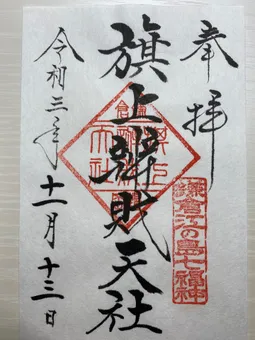 奉拝
鎌倉江の島七福神
旗上辨財天社
令和三年十一月十三日